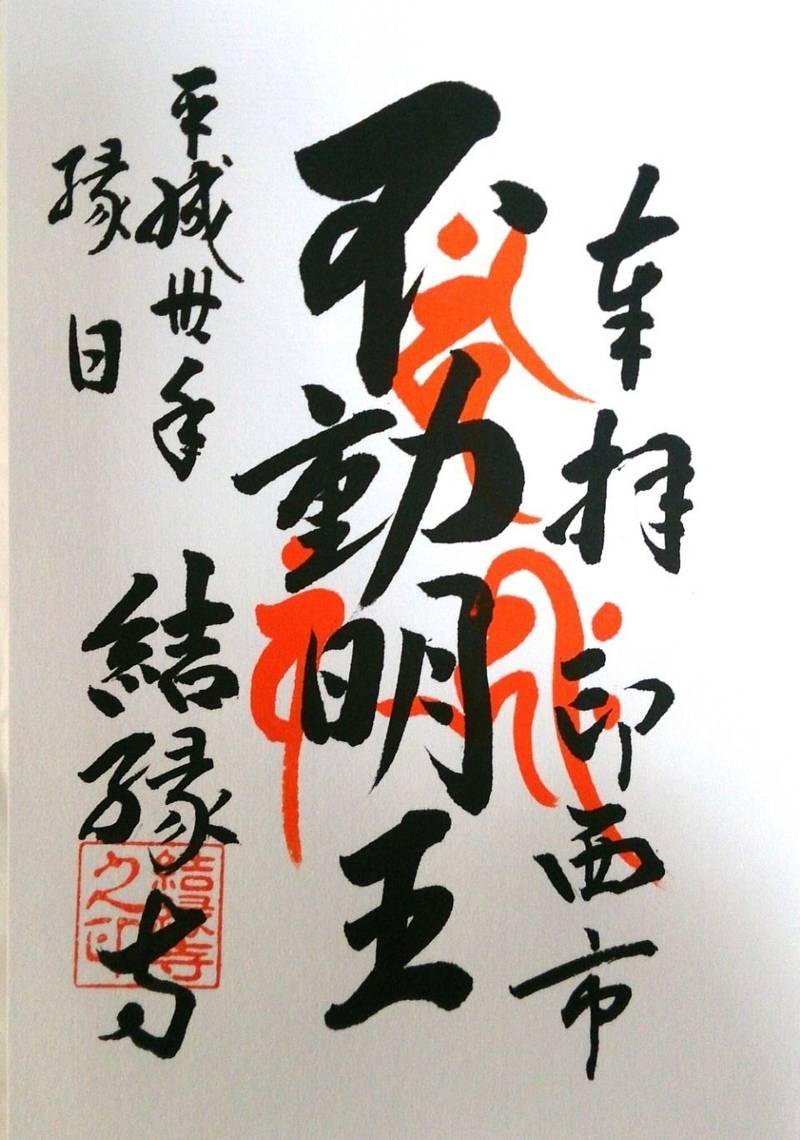 奉拝 印西市
不動明王
平成丗年
縁日
結縁寺
結縁寺之印